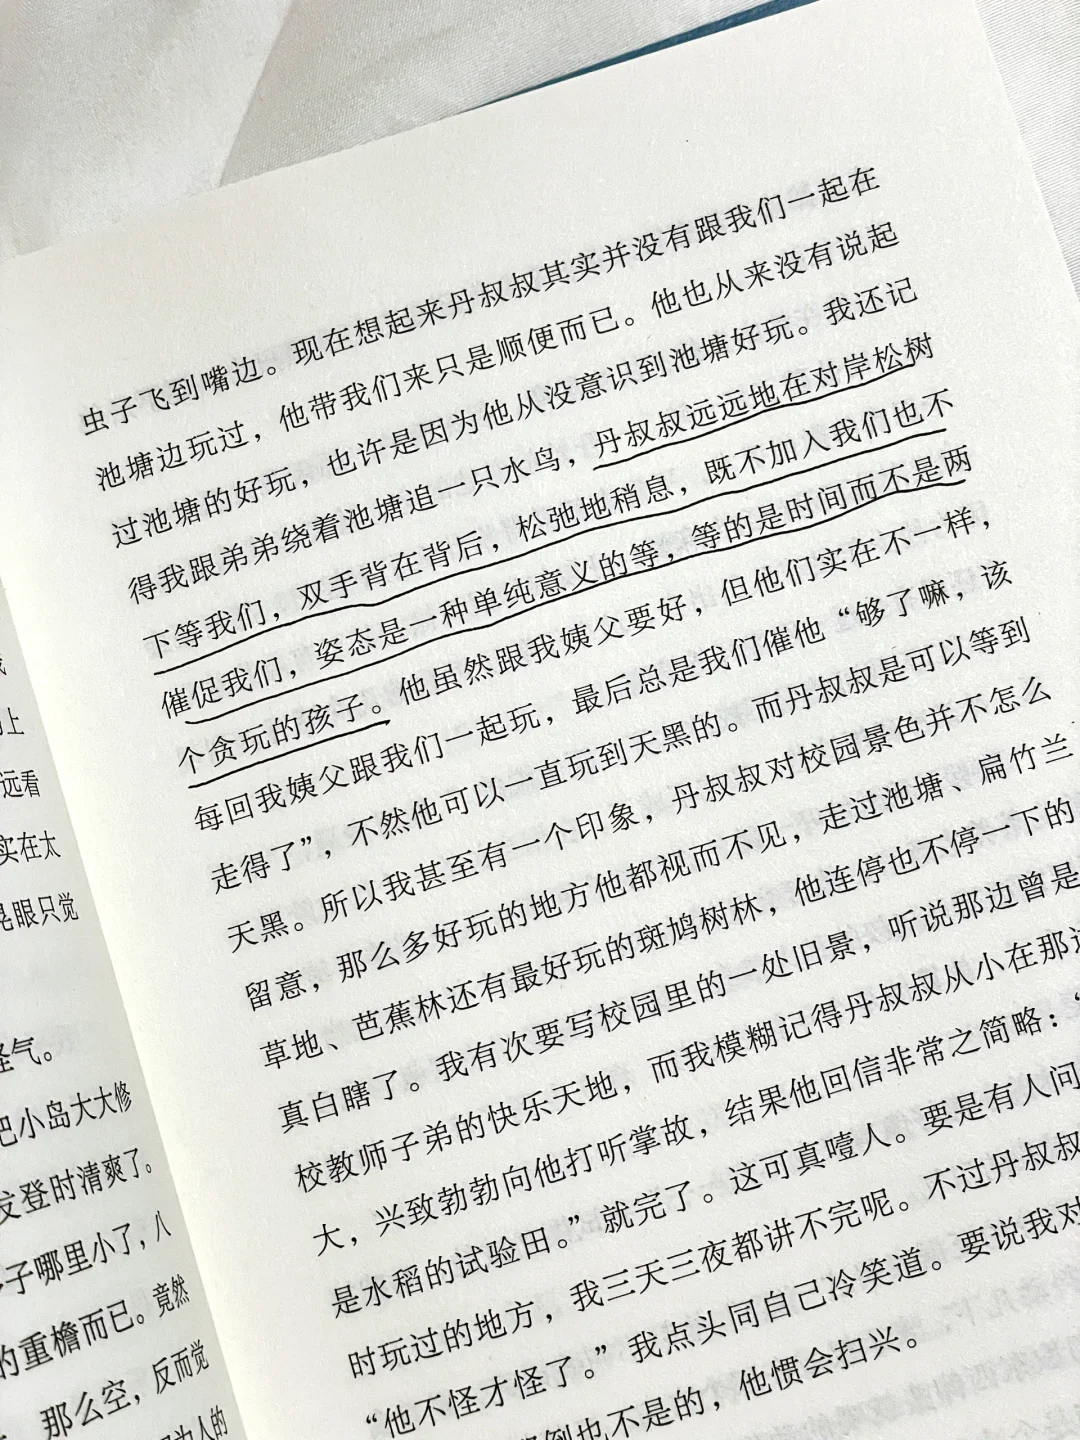 上
远看
实在太
晃眼只觉
怪气。
把小岛大大修
发登时清爽了。
子哪里小了，八
的重檐而已。竟然
那么空，反而觉
人的
虫子飞到嘴边。现在想起来丹叔叔其实并没有跟我们一起在
池塘边玩过，他带我们来只是顺便而已。他也从来没有说起
过池塘的好玩，也许是因为他从没意识到池塘好玩。我还记
得我跟弟弟绕着池塘追一只水鸟，丹叔叔远远地在对岸松树
下等我们，双手背在背后，松弛地稍息，既不加入我们也不
催促我们，姿态是一种单纯意义的等，等的是时间而不是两
个贪玩的孩子。他虽然跟我姨父要好，但他们实在不一样，
每回我姨父跟我们一起玩，最后总是我们催他“够了嘛，该
走得了”，不然他可以一直玩到天黑的。而丹叔叔是可以等到
天黑。所以我甚至有一个印象，丹叔叔对校园景色并不怎么
留意，那么多好玩的地方他都视而不见，走过池塘、扁竹兰
草地、芭蕉林还有最好玩的斑鸠树林，他连停也不停一下的
真白瞎了。我有次要写校园里的一处旧景，听说那边曾是
校教师子弟的快乐天地，而我模糊记得丹叔叔从小在那
大，兴致勃勃向他打听掌故，结果他回信非常之简略：“
是水稻的试验田。”就完了。这可真噎人。要是有人问
时玩过的地方，我三天三夜都讲不完呢。不过丹叔叔
“他不怪才怪了。”我点头同自己冷笑道。要说我对
倒也不是的，他惯会扫兴。